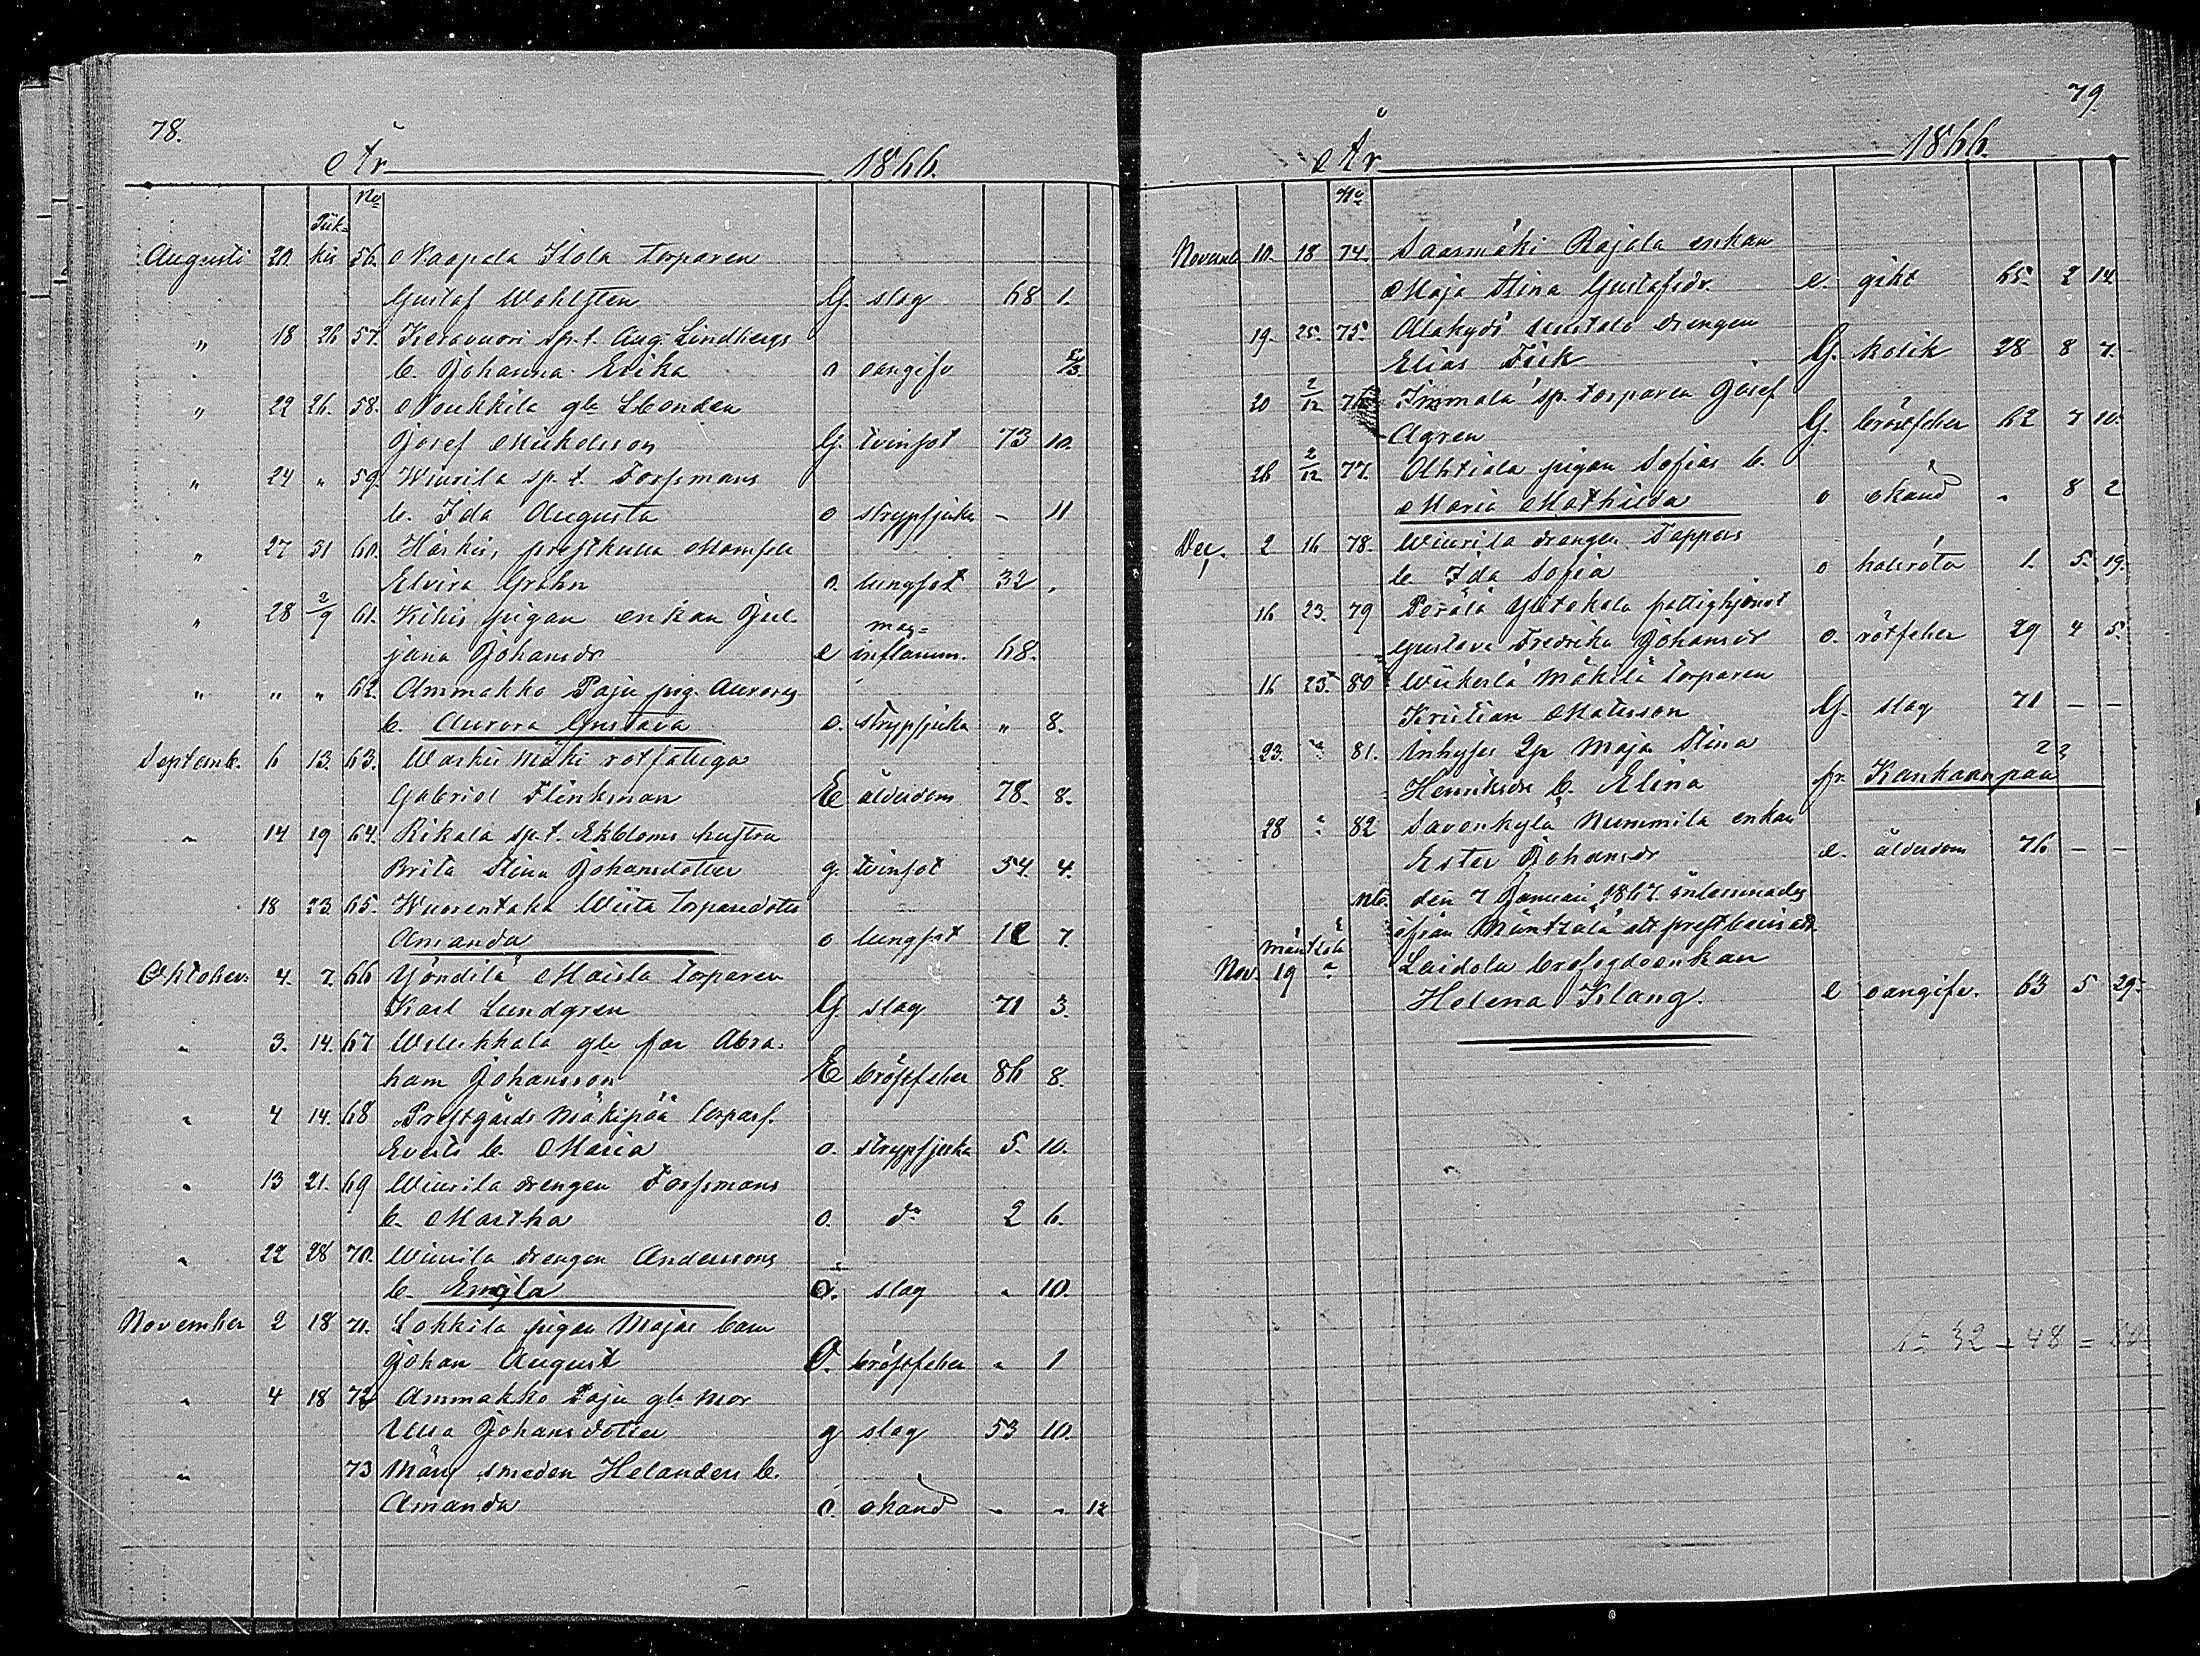 78.
År 1866.
No
Augusti 20. 56. Kaapela Ilola torparen
Gustaf Wahlsten G. slag 68 1.
" 18 26 57. Keravuori sp.t. Aug. Lindbergs
b. Johanna Erika o oangifv
" 22 26. 58. Noukkila gle Bonden
Josef Mickelsson G. tvinsot 73 10.
" 24 " 59. Wiurila sp. t. Forssmans
b. Ida Augusta o strypsjuka - 11
" 27 31 60. Mamsell
Elvira Grahn o. lungsot 32
" 28 2/9 61. Kihis pigan enkan Jul-
jana Johansdr e mag=inflamm. 68.
" " " 62. Ammakko Paju pig. Auroras
b. Aurora Gustava o. strypsjuka " 8.
Septemb. 6 13. 63. Waskis Mäki rotfattiga
Gabriel Flinkman E ålderdom 78. 8.
" 14 19 64. Rikala sp.t. Ekbloms hustru
Brita Stina Johansdotter g. tvinsot 54. 4.
18 23. 65. Wuorentaka Wiita torparedotter
Amanda o lungsot 12 7.
Oktober. 4. 7. 66 Yöndilä Maisla torparen
Karl Lundgren G. slag 71 3.
" 3. 14. 67 gle far Abra-
ham Johansson E bröstfeber 86 8.
" 4 14. 68 Prestgårds Mäkipää torpars.
b. Maria o. strypsjuka 5. 10.
" 13 21. 69 Wiurila drengen Forssmans
b. Martha o. do 2 6.
" 22 28 70. Wiurila drengen Anderssons
b. o. slag " 10.
November 2 18 71. Lokkila pigan Majas barn
Johan August O. bröstfeber " 1
" 4 18 72 Ammakko Paju gle mor
Ulla Johansdotter g slag 53 10.
" 73 smeden Helanders b.
Amanda o. okänd - " 12
79
År 1866.
No
Novemb 10. 18 74. Saarmäki Rajala enkan
Maja Stina Gustafsdr. e. gikt 65. 2 14.
19. 25. 75. Alakydö drengen
Elias Fick G. kolik 28 8 7.
20 2/12 76 Immala sp. torparen Josef
Agren G. bröstfeber 62 7 10.
26 2/12 77. Ahtiala pigan Sofias b.
Maria Mathilda o okänd " 8 2
Dec. 2 16 78. Wiurila drengen Tappers
b. Ida Sofia o halsröta 1. 5. 19.
16 23. 79 Perälä Ylitokola fattighjonet
Gustava Fredrika Johansdr o. rötfeber 29 4 5.
16 23. 80 Mäkilä torparen
Kristian Matsson G. slag 71 - -
23. " 81. Inhyses Maja Stina
Henriksdr b. Elina fr. Kankaanpää
28 " 82 Savenkylä Nummila enkan
Ester Johansdr e. ålderdom 76 - -
Nb. den 7 Januari 1867. inlemnades
ifrån Mäntzälä att prestbevis att
i Mäntzälä
Nov. 19 " Laidola brofogdeenkan
Helena Klang. e oangifv. 63 5 29.
32 - 48 =